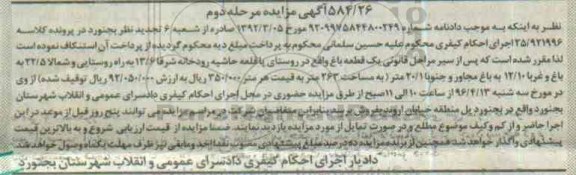 ۵۸۴/۲۶ آگهی مزایده مرحله دوم
نظر به اینکه به موجب دادنامه شماره ۹۲۰۹۹۷۵۸۴۴۸۰۰۲۴۹ مورخ ۱۳۹۲/۳/۰۵ صادره از شعبه ۶ تجدید نظر بجنورد در پرونده کلاسه
۲۵/۹۲۱۹۹۶ اجرای احکام کیفری محکوم علیه حسین سلمانی محکوم به پرداخت مبلغ دیه محکوم گردیده از پرداخت آن استنکاف نموده است
لذا مقرر شده است که پس از سیر مراحل قانونی یک قطعه باغ واقع در روستای باغلقه حاشیه رودخانه شرقا ۱۳/۶ به راه روستایی و شمالا ۲۲/۵ به
باغ و غربا ۱۲/۱۰ به باغ مجاور و جنوبا ۲۰/۱ متر (به مساحت ۲۶۳ متر به قیمت هر متر ۳۵۰/۰۰۰ ریال به ارزش ۹۲/۰۵۰/۰۰۰ ریال توقیف شده) از وی
در مورخ سه شنبه ۹۶/۴/۱۳ از ساعت ۱۰ الی ۱۱ صبح از طرق مزایده حضوری در محل اجرای احکام کیفری دادسرای عمومی و انقلاب شهرستان
بجنورد واقع در بجنورد پل منطقه خیابان اروند بفروش برسد بنابراین متقاضیان شرکت در مراسم مزایده می توانند پنج روز قبل از موعد در این
اجرا حاضر و از کم و کیف موضوع مطلع و در صورت تمایل از مورد مزایده بازدید نمایند. ضمنا مزایده از قیمت ارزیابی شروع و به بالاترین قیمت
پیشنهادی واگذار خواهد شد همچنین از برنده مزایده ده درصد مبلغ پیشنهادی
دادیار اجرای احکام کیفری دادسرای عمومی و انقلاب شهرستان بجنورد